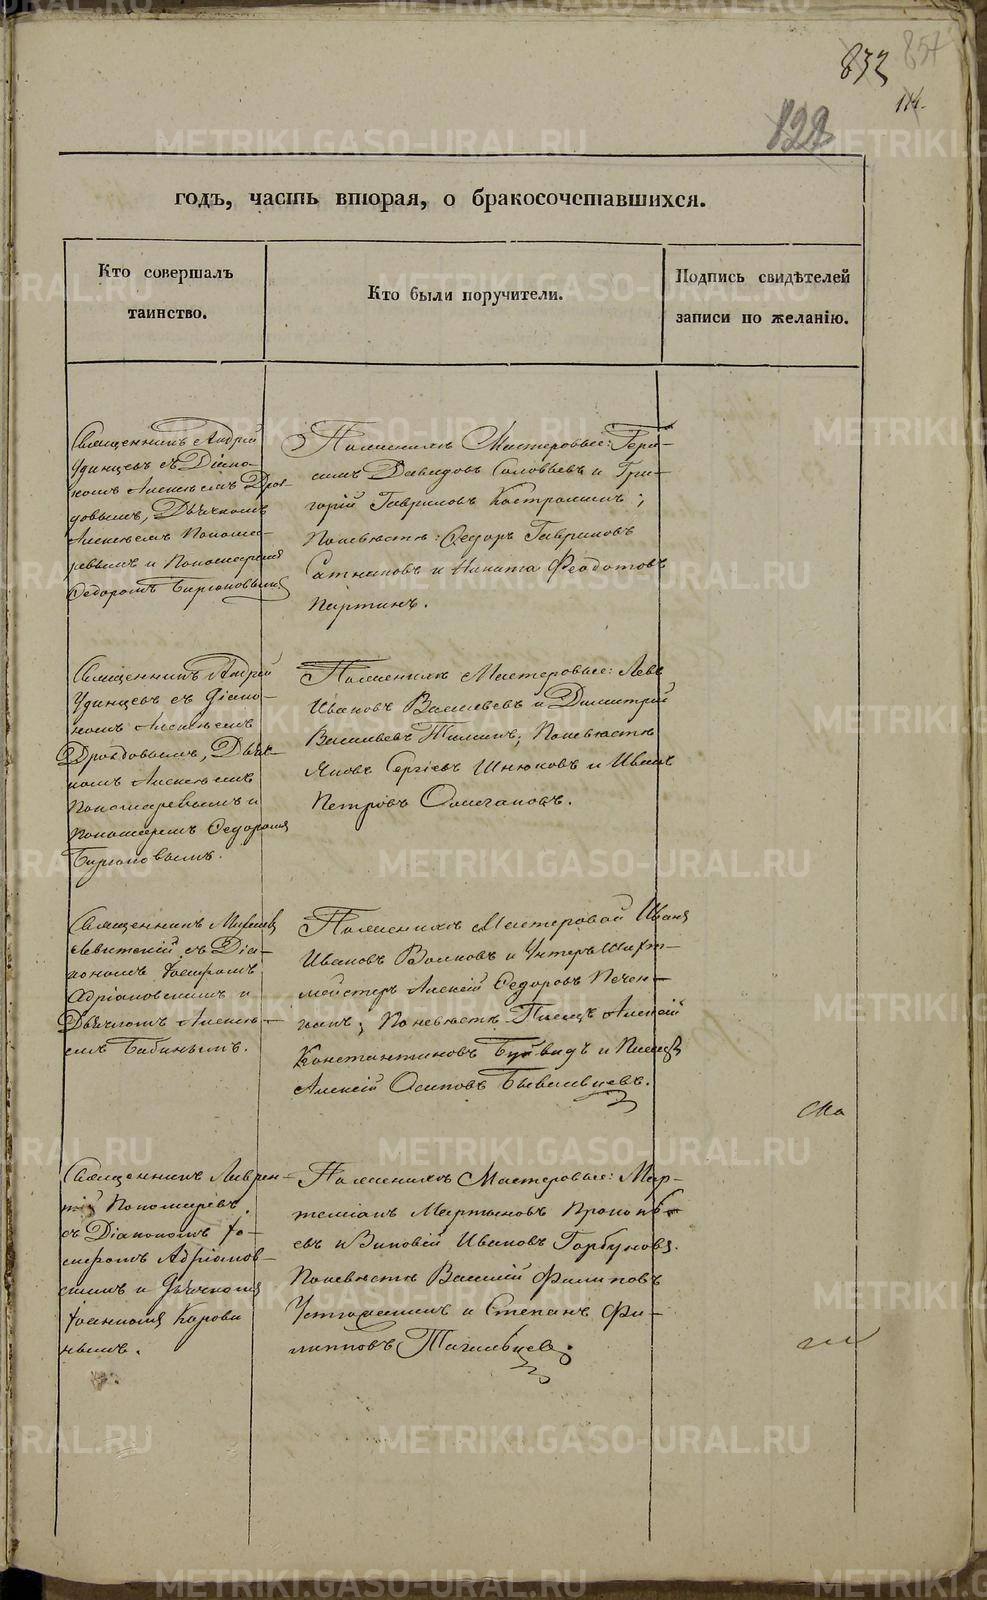 832 857
114.
122
годъ, часть вторая, о бракосочетавшихся.
Кто совершалъ
таинство.
Кто были поручители.
Подпись свидѣтелей
записи по желанію.
Священникъ Андрей
Удинцевъ съ Діако-
номъ Алексѣемъ Дроз-
довымъ, Дьячкомъ
Алексѣемъ Понома-
ревымъ и Пономаремъ
Ѳедоромъ Бирюковымъ
По женихѣ Мастеровые: Гера-
симъ Давидовъ Соловьевъ и Гри-
горій Гавриловъ Костроминъ;
По невѣстѣ: Ѳедоръ Гавриловъ
Сатниковъ и Никита Ѳеодотовъ
Партинъ.
Священникъ Андрей
Удинцевъ съ Діако-
номъ Алексѣемъ
Дроздовымъ, Дьяч-
комъ Алексѣемъ
Пономаревымъ и
Пономаремъ Ѳедоромъ
Бирюковымъ.
По женихѣ Мастеровые: Левъ
Ивановъ Васильевъ и Димитрій
Васильевъ; По невѣстѣ
Яковъ Сергіевъ Шнюковъ и Иванъ
Петровъ Олмчановъ.
Священникъ Михаилъ
Левитскій съ Діа-
кономъ Іосифомъ
Адріановскимъ и
Дьячкомъ Алексѣ-
емъ Бабинымъ.
По женихѣ Мастеровой Иванъ
Ивановъ Волковъ и Унтеръ Шихт-
мейстеръ Алексѣй Ѳедоровъ Печен-
По невѣстѣ Писецъ Алексѣй
Константиновъ Буйвидъ и Писецъ
Алексѣй Осиповъ Бывальцевъ.
Священникъ Лаврен-
тій Пономаревъ
съ Діакономъ Іо-
сифомъ Адріанов-
скимъ и Дьячкомъ
Іоанномъ Корови
нымъ.
По женихѣ Мастеровые: Мар-
теміанъ Мартыновъ Прокопь-
евъ и Зиновій Ивановъ Горбуновъ.
По невѣстѣ Василій Филиповъ
Устюжанинъ и Степанъ Фи-
липповъ Тагильцевъ.
METRIKI.GASO-URAL.RU